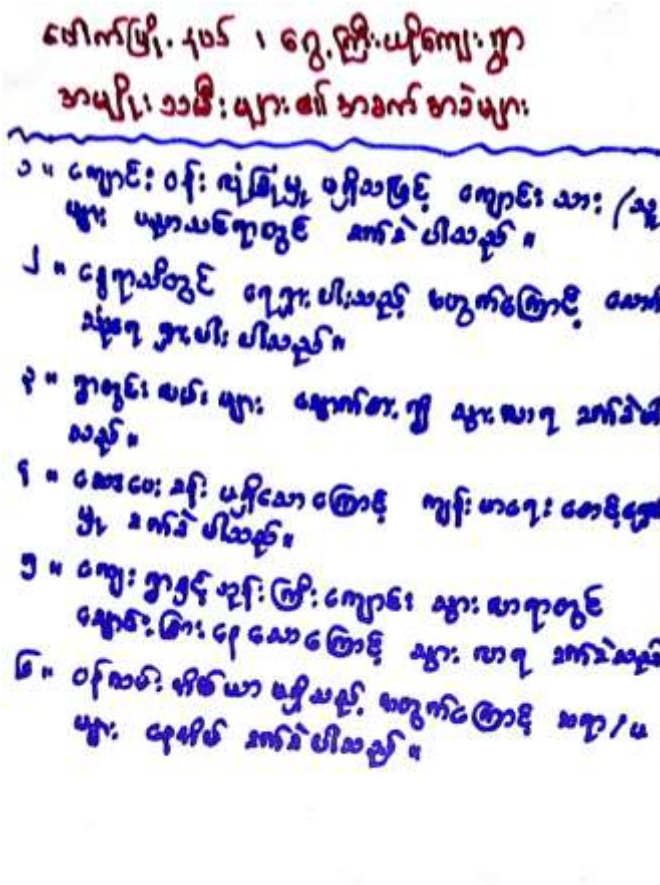 ပေါက်မြို့နယ် ၊ ရွှေကြိုးယိုကျေးရွာ
အမျိုးသမီးများ၏ အခက်အခဲများ
၁ ။ ကျောင်းဝန်းလုံခြုံမှု မရှိသဖြင့် ကျောင်းသား /သူ
များ ပညာသင်ရာတွင် ခက်ခဲပါသည် ။
၂ ။ နွေရာသီတွင် ရေရှားပါးသည့် အတွက်ကြောင့် သောက်
သုံးရေ ရှားပါးပါသည် ။
၃ ။ ရွာတွင်းလမ်းများ လျှောက်စား၍ သွားလာရ ခက်ခဲပါ
သည် ။
၄ ။ ဆေးပေးခန်း မရှိသောကြောင့် ကျန်းမာရေး စောင့်ရှောက်
မှု ခက်ခဲပါသည် ။
၅ ။ ကျေးရွာနှင့် ဘုန်းကြီးကျောင်း သွားလာရာတွင်
ချောင်းခြားနေသောကြောင့် သွားလာရ ခက်ခဲသည်
၆ ။ ဝန်ထမ်းအိမ်ယာ မရှိသည့် အတွက်ကြောင့် ဆရာ/မ
များ နေထိုင် ခက်ခဲပါသည် ။